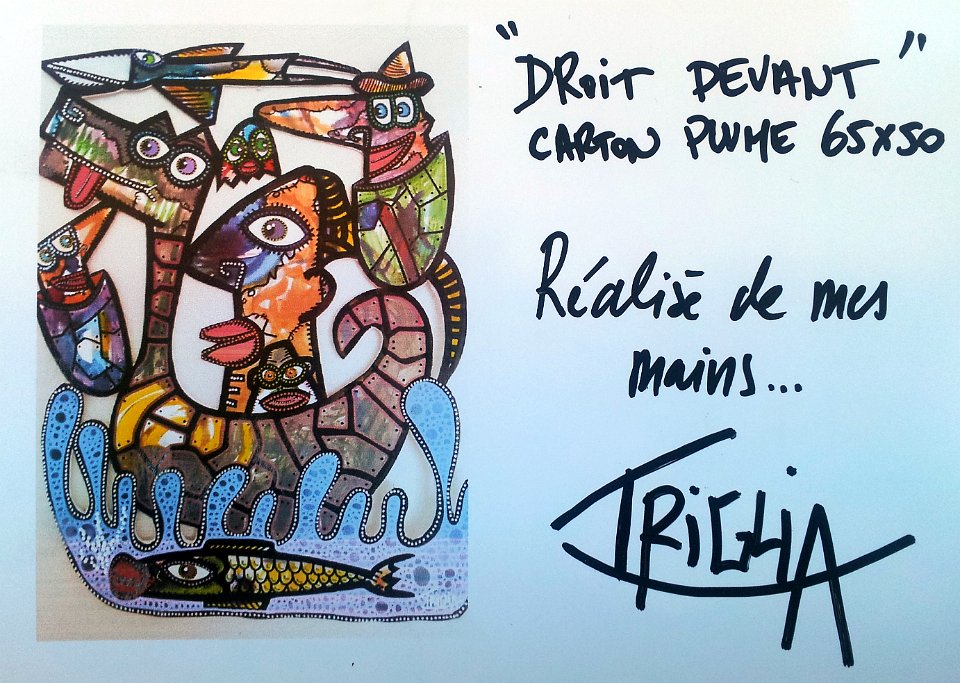 "DROIT DEVANT"
CARTON PLUME 65x50
Réalisé de mes
mains...
TRIGLIA